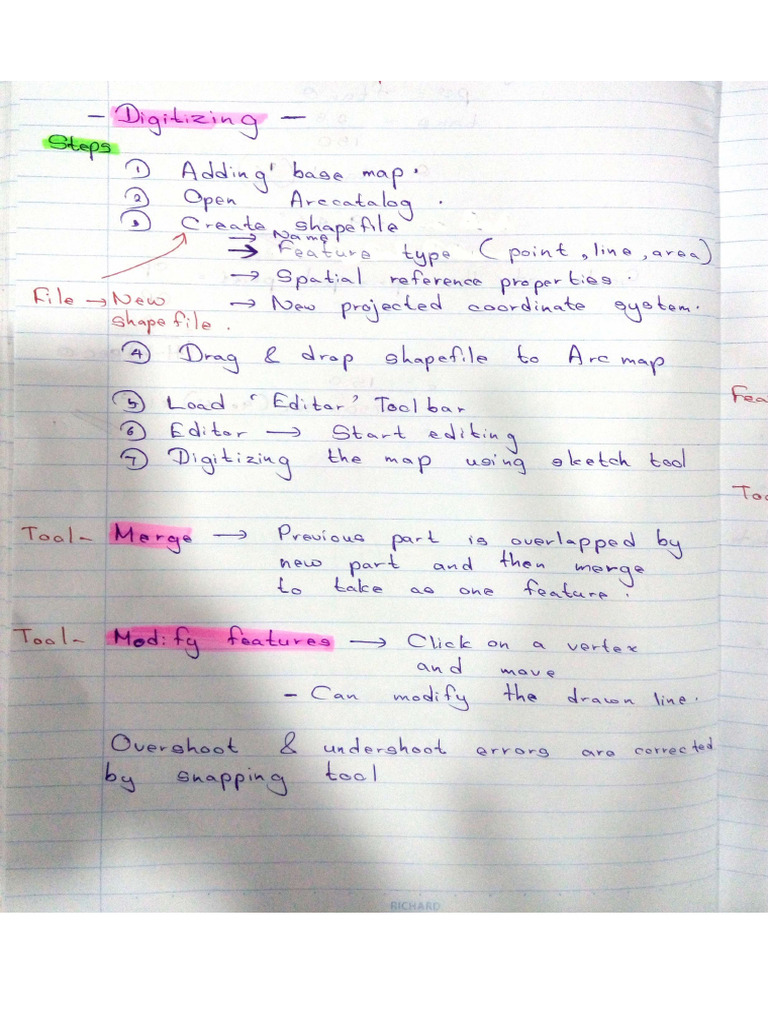 - Digitizing -
Steps
① Adding base map.
② Open Arccatalog.
③ Create shapefile
→ Name
→ Feature type (point, line, area)
→ Spatial reference properties.
File → New → New projected coordinate system.
shapefile.
④ Drag & drop shapefile to Arc map
⑤ Load 'Editor' Toolbar
⑥ Editor → Start editing
⑦ Digitizing the map using sketch tool
Tool - Merge → Previous part is overlapped by
new part and then merge
to take as one feature.
Tool - Modify features → Click on a vertex
and move
- Can modify the drawn line.
Overshoot & undershoot errors are corrected
by snapping tool
RICHARD